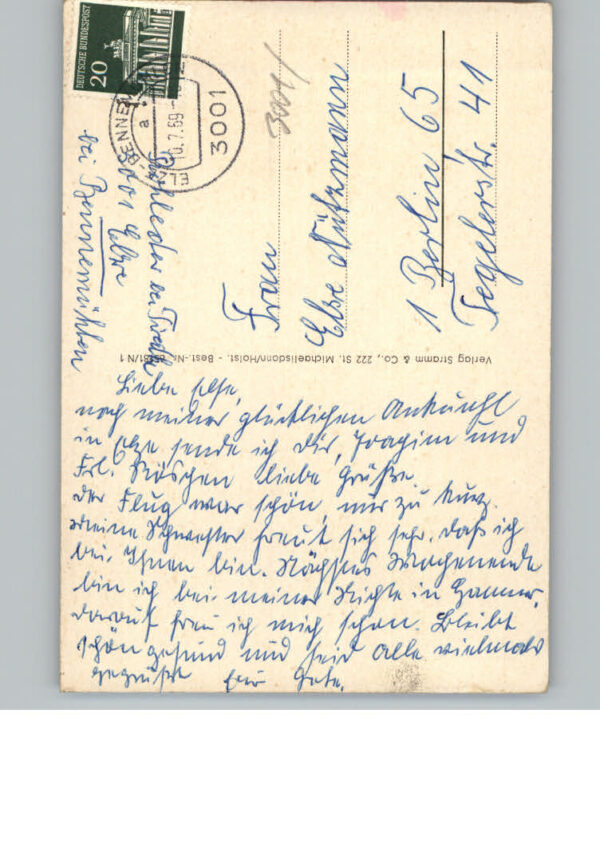 DEUTSCHE BUNDESPOST
20
3001
10.7.69
a
3001
3001 Elze
bei Bennemühlen
Frau
Else Nützmann
1 Berlin 65
Tegelerstr. 41
Verlag Stramm & Co., 222 St. Michaelisdonn/Holst. - Best.-Nr.
Liebe Else,
nach meiner glücklichen Ankunft
in Elze sende ich Dir, Joachim und
Frl. Röschen liebe Grüße.
Der Flug war schön, nur zu kurz.
Meine Schwester freut sich sehr, daß ich
bei Ihnen bin. Nächstes Wochenende
bin ich bei meiner Nichte in Hannov.
darauf freu ich mich schon. Bleibt
schön gesund und seid alle vielmals
gegrüßt